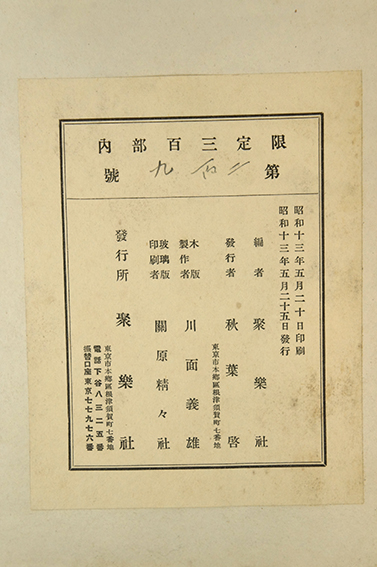 限定三百部內
第二百九號
昭和十三年五月二十日印刷
昭和十三年五月二十五日發行
編者 聚樂社
發行者 秋葉啓
東京市本鄕區根津須賀町七番地
木版製作者 川面義雄
玻璃版印刷者 關原精々社
發行所 聚樂社
東京市本鄕區根津須賀町七番地
電話下谷八三二五番
振替口座東京七七九七六番